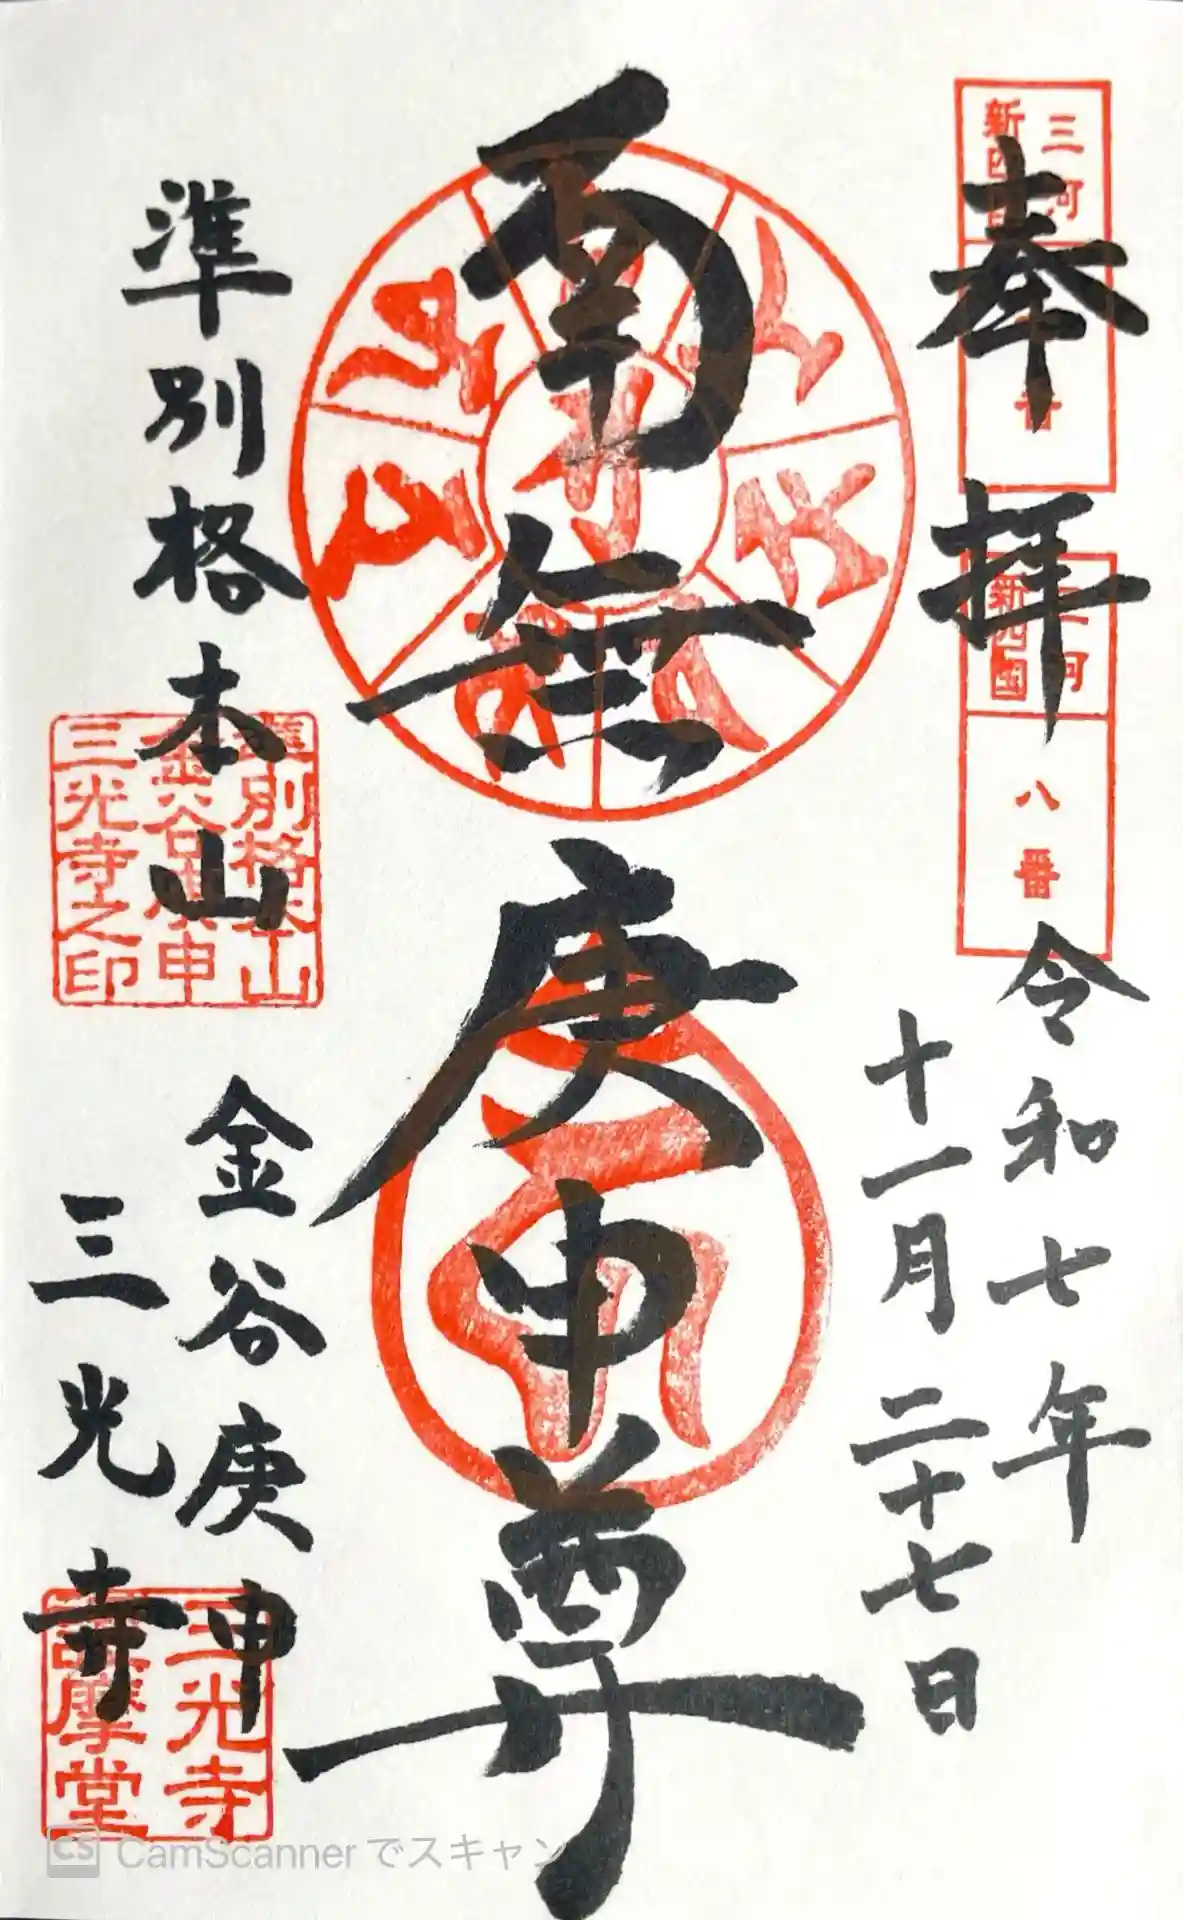 奉拝
令和七年
十一月二十七日
南無庚申尊
準別格本山
金谷庚申
三光寺
三河
新四国
番
三河
新四国
八番
準別格本山
金谷庚申
三光寺之印
三光寺
護摩堂
CamScannerでスキャン